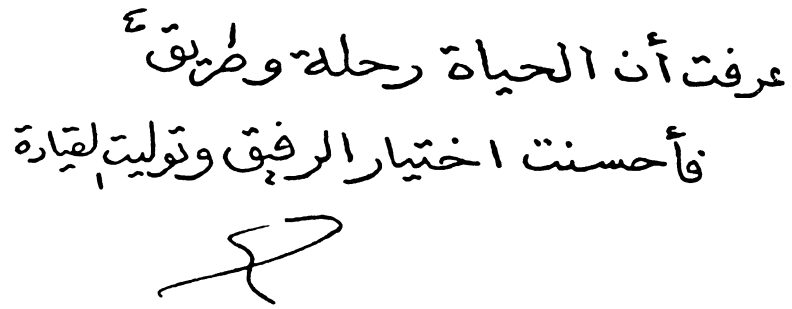 عرفت أن الحياة رحلة وطريق
فأحسنت اختيار الرفيق وتوليت القيادة